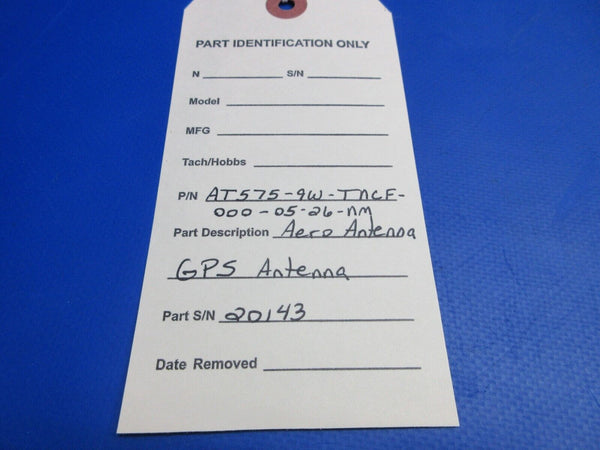 PART IDENTIFICATION ONLY
N S/N
Model
MFG
Tach/Hobbs
P/N AT575-9W-TNCF-
000-05-26-NM
Part Description Aero Antenna
GPS Antenna
Part S/N 20143
Date Removed